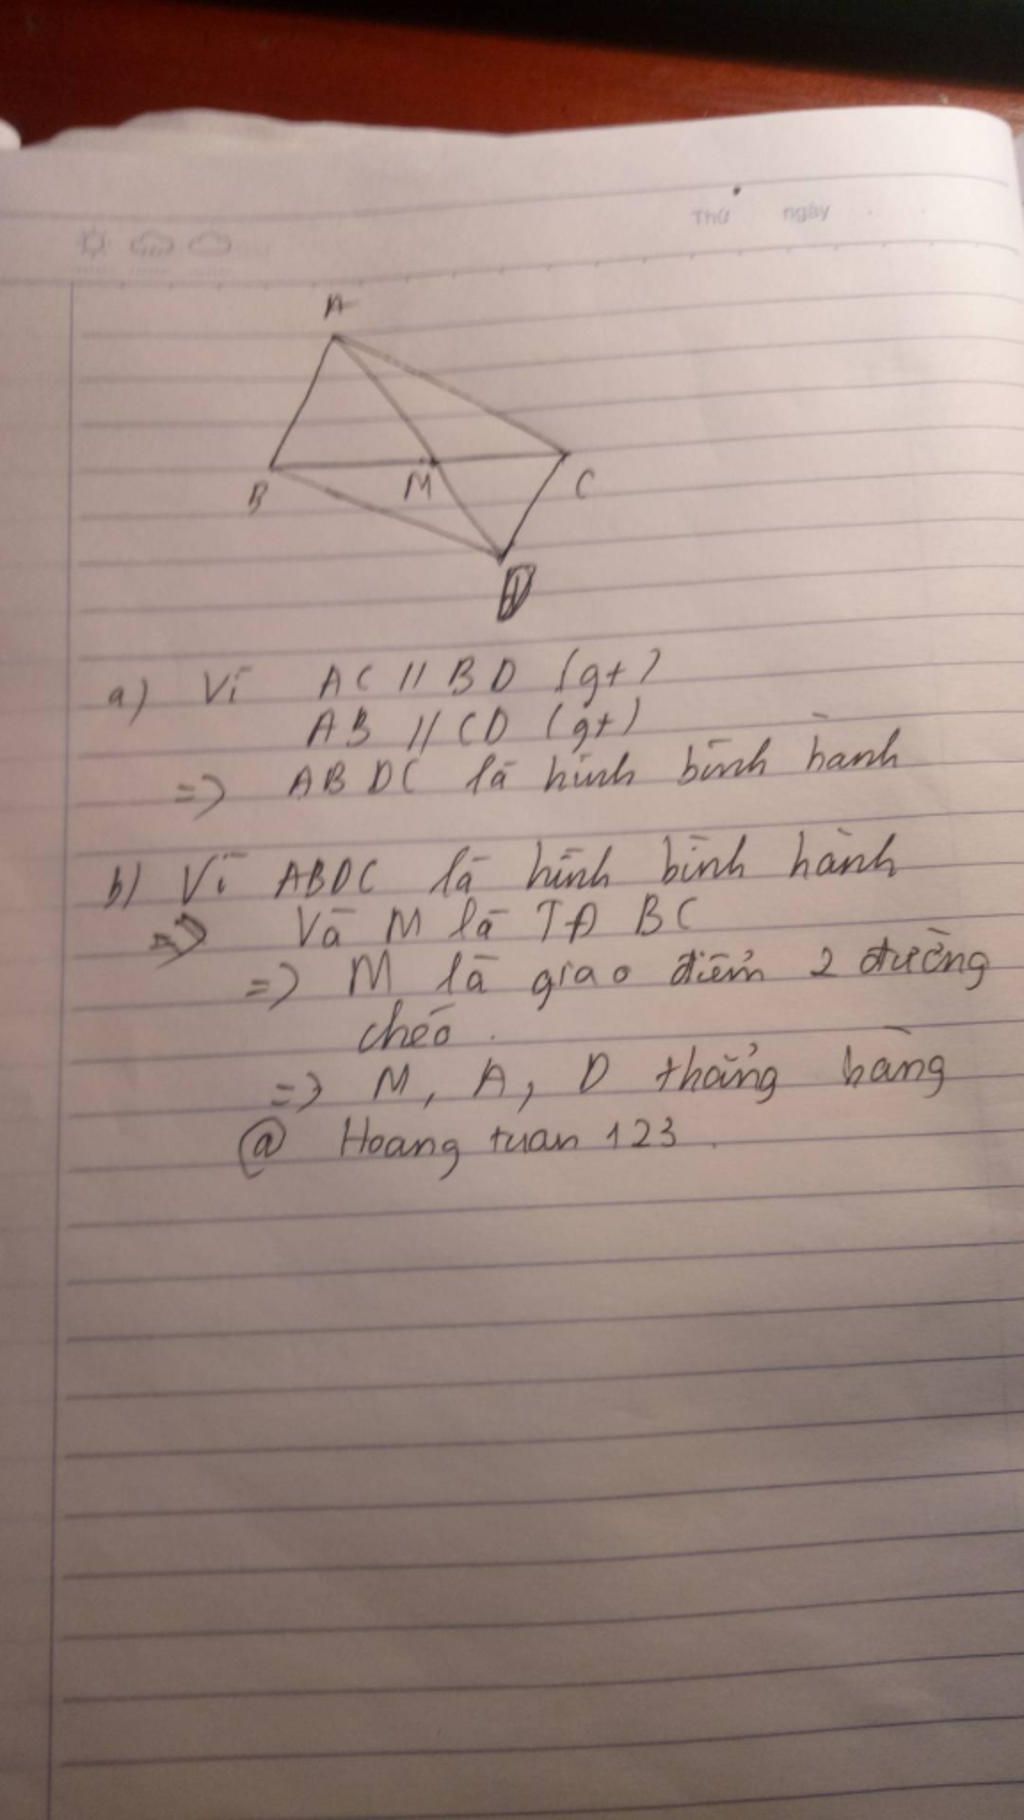 Thứ ngày
A
B
M
C
D
a) Vì AC // BD (gt)
AB // CD (gt)
=> ABDC là hình bình hành
b) Vì ABDC là hình bình hành
Và M là TĐ BC
=> M là giao điểm 2 đường
chéo.
=> M, A, D thẳng hàng
@ Hoang tuan 123.